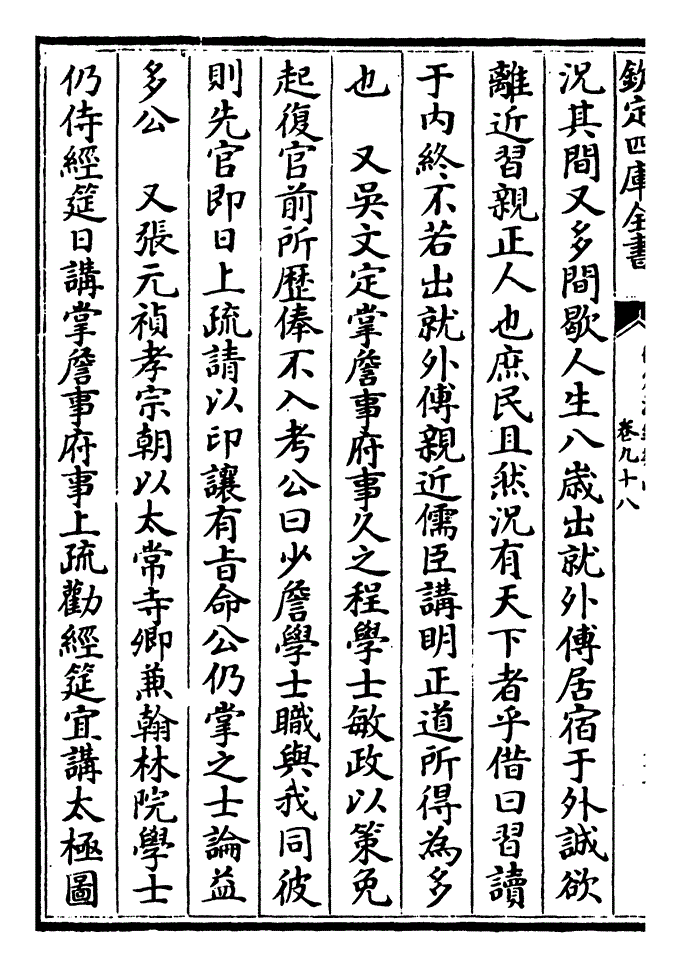 欽定四庫全書
卷九十八
況其間又多間歇人生八歲出就外傅居宿于外誠欲
離近習親正人也庶民且然況有天下者乎借曰習讀
于内終不若出就外傅親近儒臣講明正道所得為多
也　又吳文定掌詹事府事久之程學士敏政以策免
起復官前所歷俸不入考公曰少詹學士職與我同彼
則先官即日上疏請以印讓有㫖命公仍掌之士論益
多公　又張元禎孝宗朝以太常寺卿兼翰林院學士
仍侍經筵日講掌詹事府事上疏勸經筵宜講太極圖